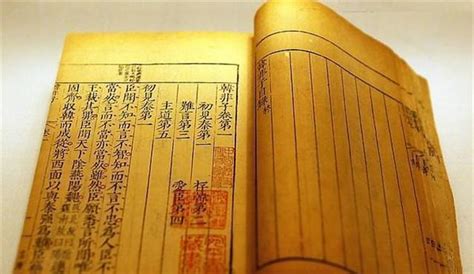 韓非子卷第一
初見秦第一　存韓第二
難言第三　愛臣第四
主道第五
初見秦第一
臣聞不知而言不智知而不言不忠爲人臣不
當死言而不當亦當死雖然臣願悉言所聞唯
王裁其罪臣聞天下陰燕陽魏
固齊收韓而成從將西面以與秦強